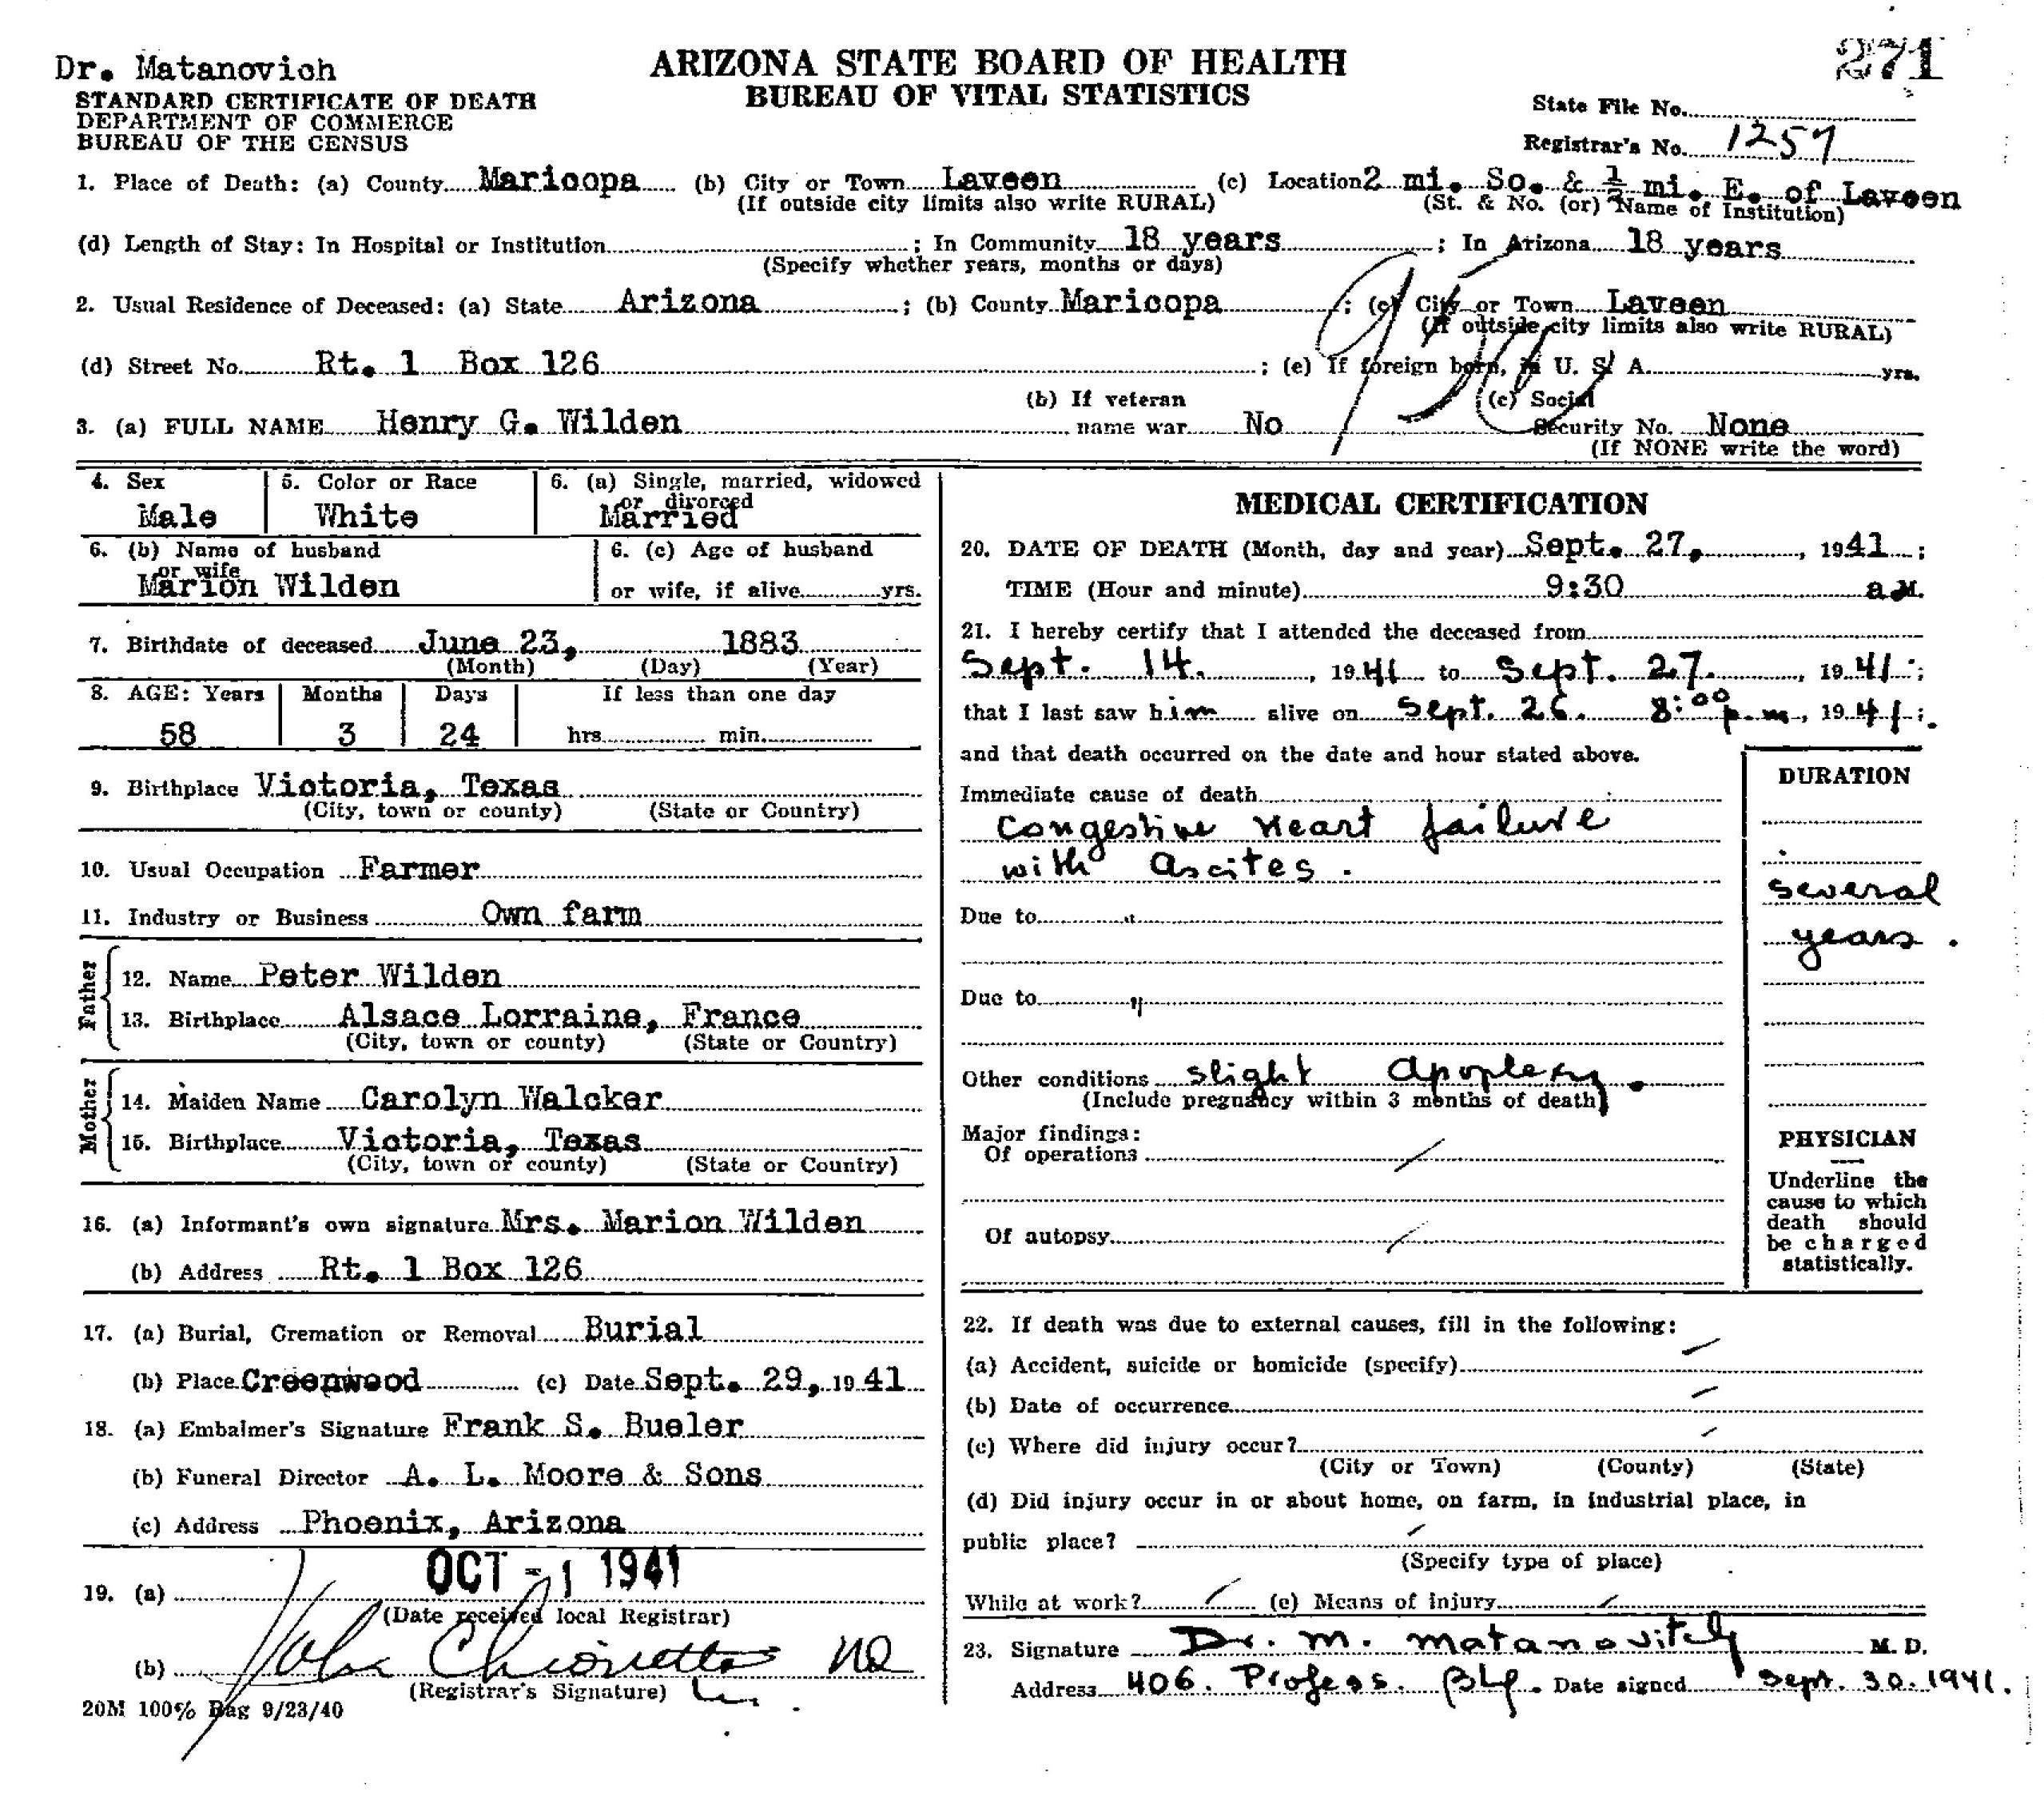 Dr. Matanovich
ARIZONA STATE BOARD OF HEALTH
271
STANDARD CERTIFICATE OF DEATH
BUREAU OF VITAL STATISTICS
DEPARTMENT OF COMMERCE
State File No.
BUREAU OF THE CENSUS
Registrar's No. 1257
1. Place of Death: (a) County Maricopa (b) City or Town Laveen (c) Location 2 mi. So. & 1/2 mi. E. of Laveen
(If outside city limits also write RURAL) (St. & No. (or) Name of Institution)
(d) Length of Stay: In Hospital or Institution ; In Community 18 years ; In Arizona 18 years
(Specify whether years, months or days)
2. Usual Residence of Deceased: (a) State Arizona ; (b) County Maricopa ; (c) City or Town Laveen
(If outside city limits also write RURAL)
(d) Street No. Rt. 1 Box 126 ; (e) If foreign born, in U. S. A. yrs.
(b) If veteran (c) Social
3. (a) FULL NAME Henry G. Wilden name war No Security No. None
(If NONE write the word)
4. Sex 5. Color or Race 6. (a) Single, married, widowed
or divorced
Male White Married
6. (b) Name of husband 6. (c) Age of husband
or wife
Marion Wilden or wife, if alive yrs.
7. Birthdate of deceased June 23, 1883
(Month) (Day) (Year)
8. AGE: Years Months Days If less than one day
58 3 24 hrs. min.
9. Birthplace Victoria, Texas
(City, town or county) (State or Country)
10. Usual Occupation Farmer
11. Industry or Business Own farm
Father
12. Name Peter Wilden
13. Birthplace Alsace Lorraine, France
(City, town or county) (State or Country)
Mother
14. Maiden Name Carolyn Walcker
15. Birthplace Victoria, Texas
(City, town or county) (State or Country)
16. (a) Informant's own signature Mrs. Marion Wilden
(b) Address Rt. 1 Box 126
17. (a) Burial, Cremation or Removal Burial
(b) Place Greenwood (c) Date Sept. 29, 1941
18. (a) Embalmer's Signature Frank S. Bueler
(b) Funeral Director A. L. Moore & Sons
(c) Address Phoenix, Arizona
OCT -1 1941
19. (a)
(Date received local Registrar)
(b)
(Registrar's Signature)
20M 100% Bag 9/23/40
MEDICAL CERTIFICATION
20. DATE OF DEATH (Month, day and year) Sept. 27, , 1941 ;
TIME (Hour and minute) 9:30 a M.
21. I hereby certify that I attended the deceased from
Sept. 14. , 1941 to Sept. 27. , 1941 ;
that I last saw him alive on Sept. 26. 8:00 p.m , 1941 ;
and that death occurred on the date and hour stated above.
DURATION
Immediate cause of death
Congestive Heart failure
with Ascites.
several
Due to "
years.
Due to "
Other conditions slight Apoplexy.
(Include pregnancy within 3 months of death)
Major findings:
Of operations
Of autopsy
PHYSICIAN
Underline the
cause to which
death should
be charged
statistically.
22. If death was due to external causes, fill in the following:
(a) Accident, suicide or homicide (specify)
(b) Date of occurrence
(c) Where did injury occur?
(City or Town) (County) (State)
(d) Did injury occur in or about home, on farm, in industrial place, in
public place?
(Specify type of place)
While at work? (e) Means of injury
23. Signature Dr. M. Matanovitch M. D.
Address 406. Profess. Bldg. Date signed Sept. 30. 1941.